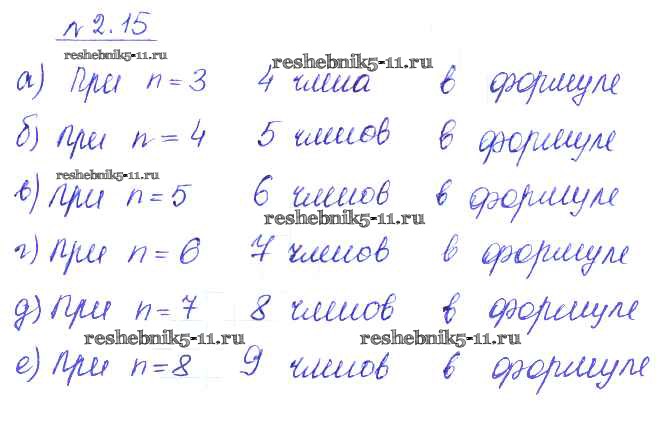 № 2.15
reshebnik5-11.ru
reshebnik5-11.ru
а) При n = 3 4 члена в формуле
б) При n = 4 5 членов в формуле
reshebnik5-11.ru
в) При n = 5 6 членов в формуле
reshebnik5-11.ru
г) При n = 6 7 членов в формуле
д) При n = 7 8 членов в формуле
reshebnik5-11.ru reshebnik5-11.ru
е) При n = 8 9 членов в формуле